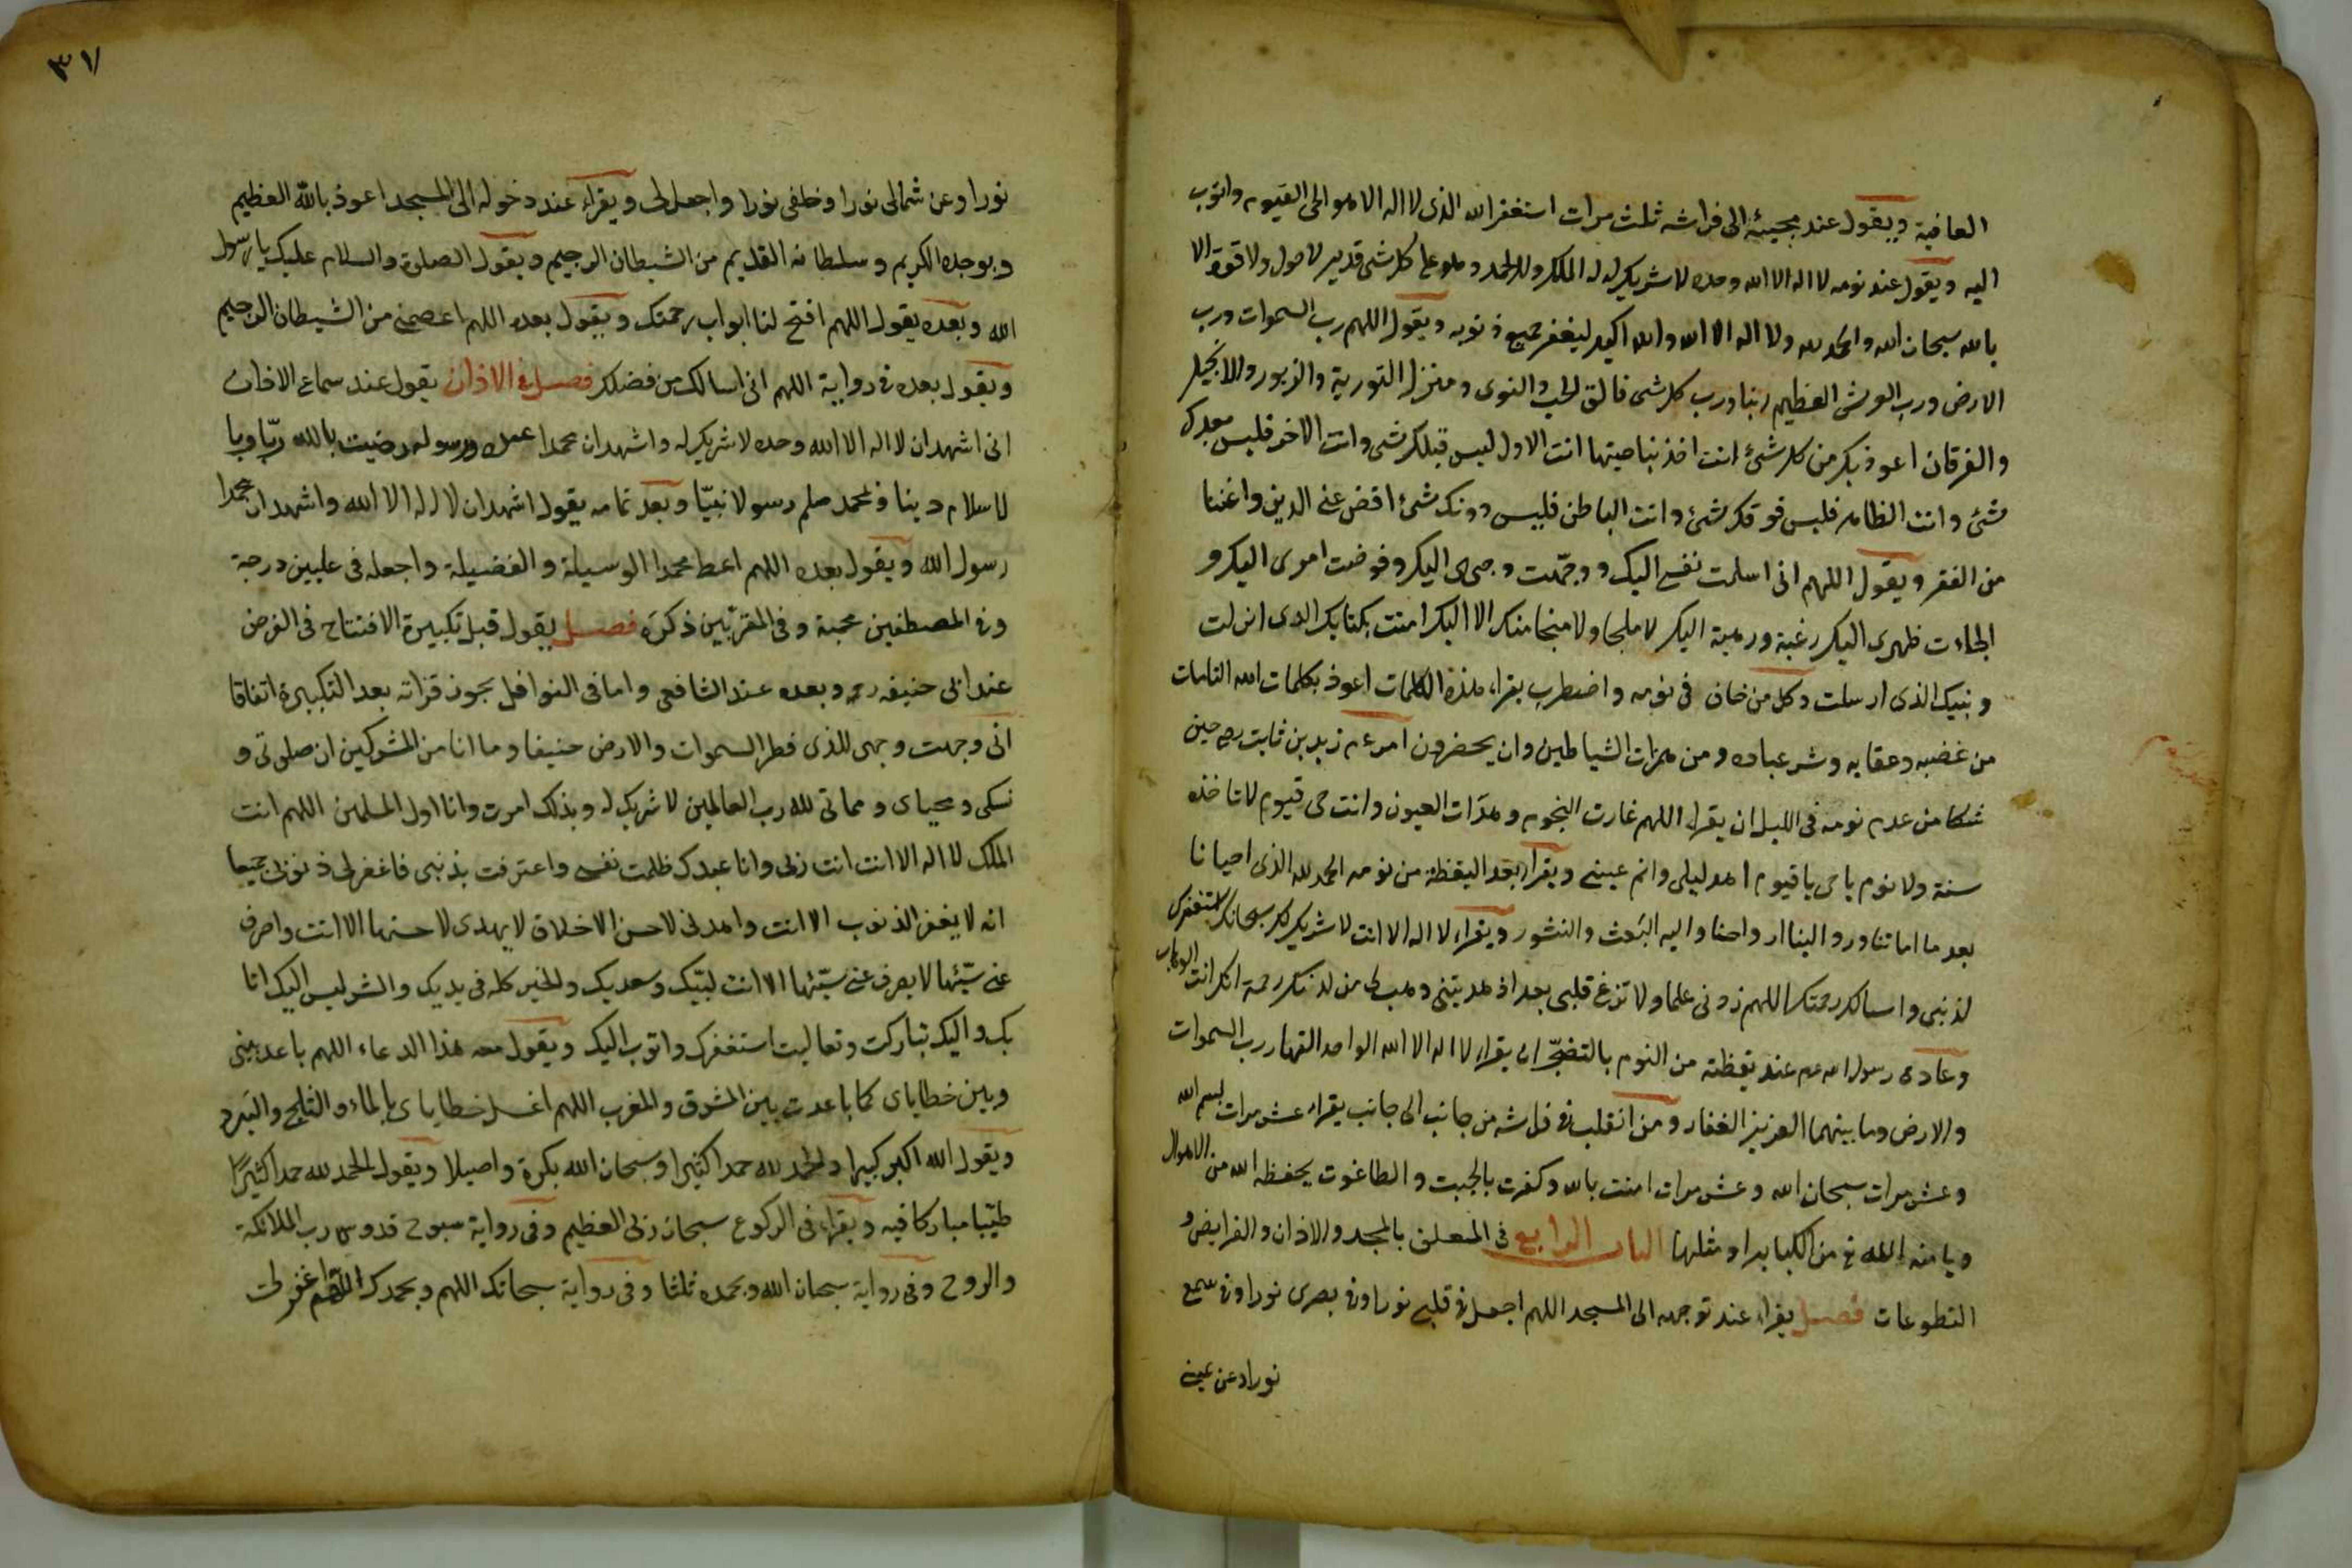 العافية ويقول عند مجيئه الى فراشه ثلث مرات استغفر الله الذى لا اله الا هو الحى القيوم واتوب
اليه ويقول عند نومه لا اله الا الله وحده لا شريك له له الملك وله الحمد وهو على كل شى قدير لا حول ولا قوة الا
بالله سبحان الله والحمد لله ولا اله الا الله والله اكبر ليغفر جميع ذنوبه ويقول اللهم رب السموات ورب
الارض ورب العرش العظيم ربنا ورب كل شى فالق الحب والنوى ومنزل التورية والزبور والانجيل
والفرقان اعوذ بك من كل شئ انت اخذ بناصيتها انت الاول ليس قبلك شى وانت الاخر فليس بعدك
شئ وانت الظاهر فليس فوقك شئ وانت الباطن فليس دونك شئ اقض عنى الدين واغننا
من الفقر ويقول اللهم انى اسلمت نفسى اليك ووجهت وجهى اليك وفوضت امرى اليك و
الجاءت ظهرى اليك رغبة ورهبة اليك لا ملجا ولا منجا منك الا اليك امنت بكتابك الذى انزلت
ونبيك الذى ارسلت وكل من خاف فى نومه واضطرب يقراء هذه الكلمات اعوذ بكلمات الله التامات
من غضبه وعقابه وشر عباده ومن همزات الشياطين وان يحضرون امر عم زيد بن ثابت رضه حين
شكا من عدم نومه فى الليل ان يقراء اللهم غارت النجوم وهدات العيون وانت حى قيوم لا تاخذه
سنة ولا نوم يا حى يا قيوم اهد ليلى وانم عينى ويقراء بعد اليقظة من نومه الحمد لله الذى احيانا
بعد ما اماتنا ورد الينا ارواحنا واليه البعث والنشور ويقراء لا اله الا انت لا شريك لك سبحانك استغفرك
لذنبى واسالك رحمتك اللهم زدنى علما ولا تزغ قلبى بعد اذ هديتنى وهب لى من لدنك رحمة انك انت الوهاب
وعادة رسول الله عم عند يقظته من النوم بالتضجر ان يقراء لا اله الا الله الواحد القهار رب السموات
والارض وما بينهما العزيز الغفار ومن انقلب فى فراشه من جانب الى جانب يقراء عشر مرات بسم الله
وعشر مرات سبحان الله وعشر مرات امنت بالله وكفرت بالجبت والطاغوت يحفظه الله من الاهوال
ويامنه الله من الكبا يرا ومثلها الباب الرابع فى المتعلق بالمسجد والاذان والفرايض و
التطوعات فصل يقراء عند توجهه الى المسجد اللهم اجعل فى قلبى نورا وفى بصرى نورا وفى سمع
نورا وعن يمينى
٣٧
نورا وعن شمالى نورا وخلفى نورا واجعل لى ويقراء عند دخوله الى المسجد اعوذ بالله العظيم
وبوجهه الكريم وسلطانه القديم من الشيطان الرجيم ويقول الصلوة والسلام عليك يا رسول
الله وبعده يقول اللهم افتح لنا ابواب رحمتك ويقول بعده اللهم اعصمنى من الشيطان الرجيم
ويقول بعده فى رواية اللهم انى اسالك من فضلك فصل فى الاذان يقول عند سماع الاذان
انى اشهد ان لا اله الا الله وحده لا شريك له واشهد ان محمدا عبده ورسوله رضيت بالله ربّا وبا
لاسلام دينا وبمحمد صلعم رسولا نبيّا وبعد تمامه يقول اشهد ان لا اله الا الله واشهد ان محمدا
رسول الله ويقول بعده اللهم اعط محمدا الوسيلة والفضيلة واجعله فى عليين درجة
وفى المصطفين محبة وفى المقربين ذكره فصل يقول قبل تكبيرة الافتتاح فى الفرض
عند ابى حنيفه رحمه وبعده عند الشافعى واما فى النوافل يجوز قراته بعد التكبيرة اتفاقا
انى وجهت وجهى للذى فطر السموات والارض حنيفا وما انا من المشركين ان صلوتى و
نسكى ومحياى ومماتى لله رب العالمين لا شريك له وبذلك امرت وانا اول المسلمين اللهم انت
الملك لا اله الا انت انت ربى وانا عبدك ظلمت نفسى واعترفت بذنبى فاغفر لى ذنوبى جميعا
انه لا يغفر الذنوب الا انت واهدنى لاحسن الاخلاق لا يهدى لاحسنها الا انت واصرف
عنى سيّئها لا يصرف عنى سيّئها الا انت لبّيك وسعديك والخير كله فى يديك والشر ليس اليك انا
بك واليك تباركت وتعاليت استغفرك واتوب اليك ويقول معه هذا الدعاء اللهم باعد بينى
وبين خطاياى كما باعدت بين المشرق والمغرب اللهم اغسل خطاياى بالماء والثلج والبَرد
ويقول الله اكبر كبيرا والحمد لله حمدا كثيرا وسبحان الله بكرة واصيلا ويقول الحمد لله حمدا كثيرًا
طيّبا مباركا فيه ويقراء فى الركوع سبحان ربى العظيم وفى رواية سبوح قدوس رب الملائكة
والروح وفى رواية سبحان الله وبحمده ثلثا وفى رواية سبحانك اللهم وبحمدك اللهم اغفر لى